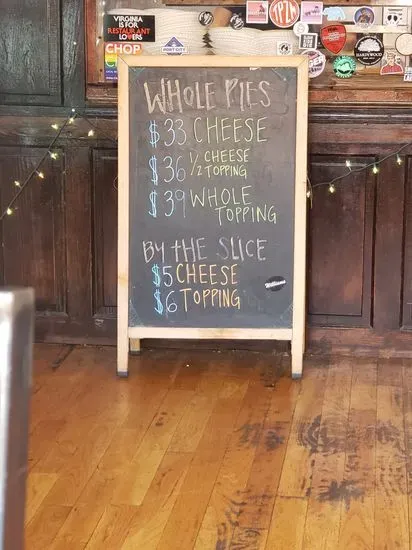 VIRGINIA
IS FOR
RESTAURANT
LOVERS
CHOP
PORT CITY
TPLR
HARDYWOOD
WHOLE PIES
$33 CHEESE
$36 1/2 CHEESE
1/2 TOPPING
$39 WHOLE
TOPPING
BY THE SLICE
$5 CHEESE
$6 TOPPING
Williams